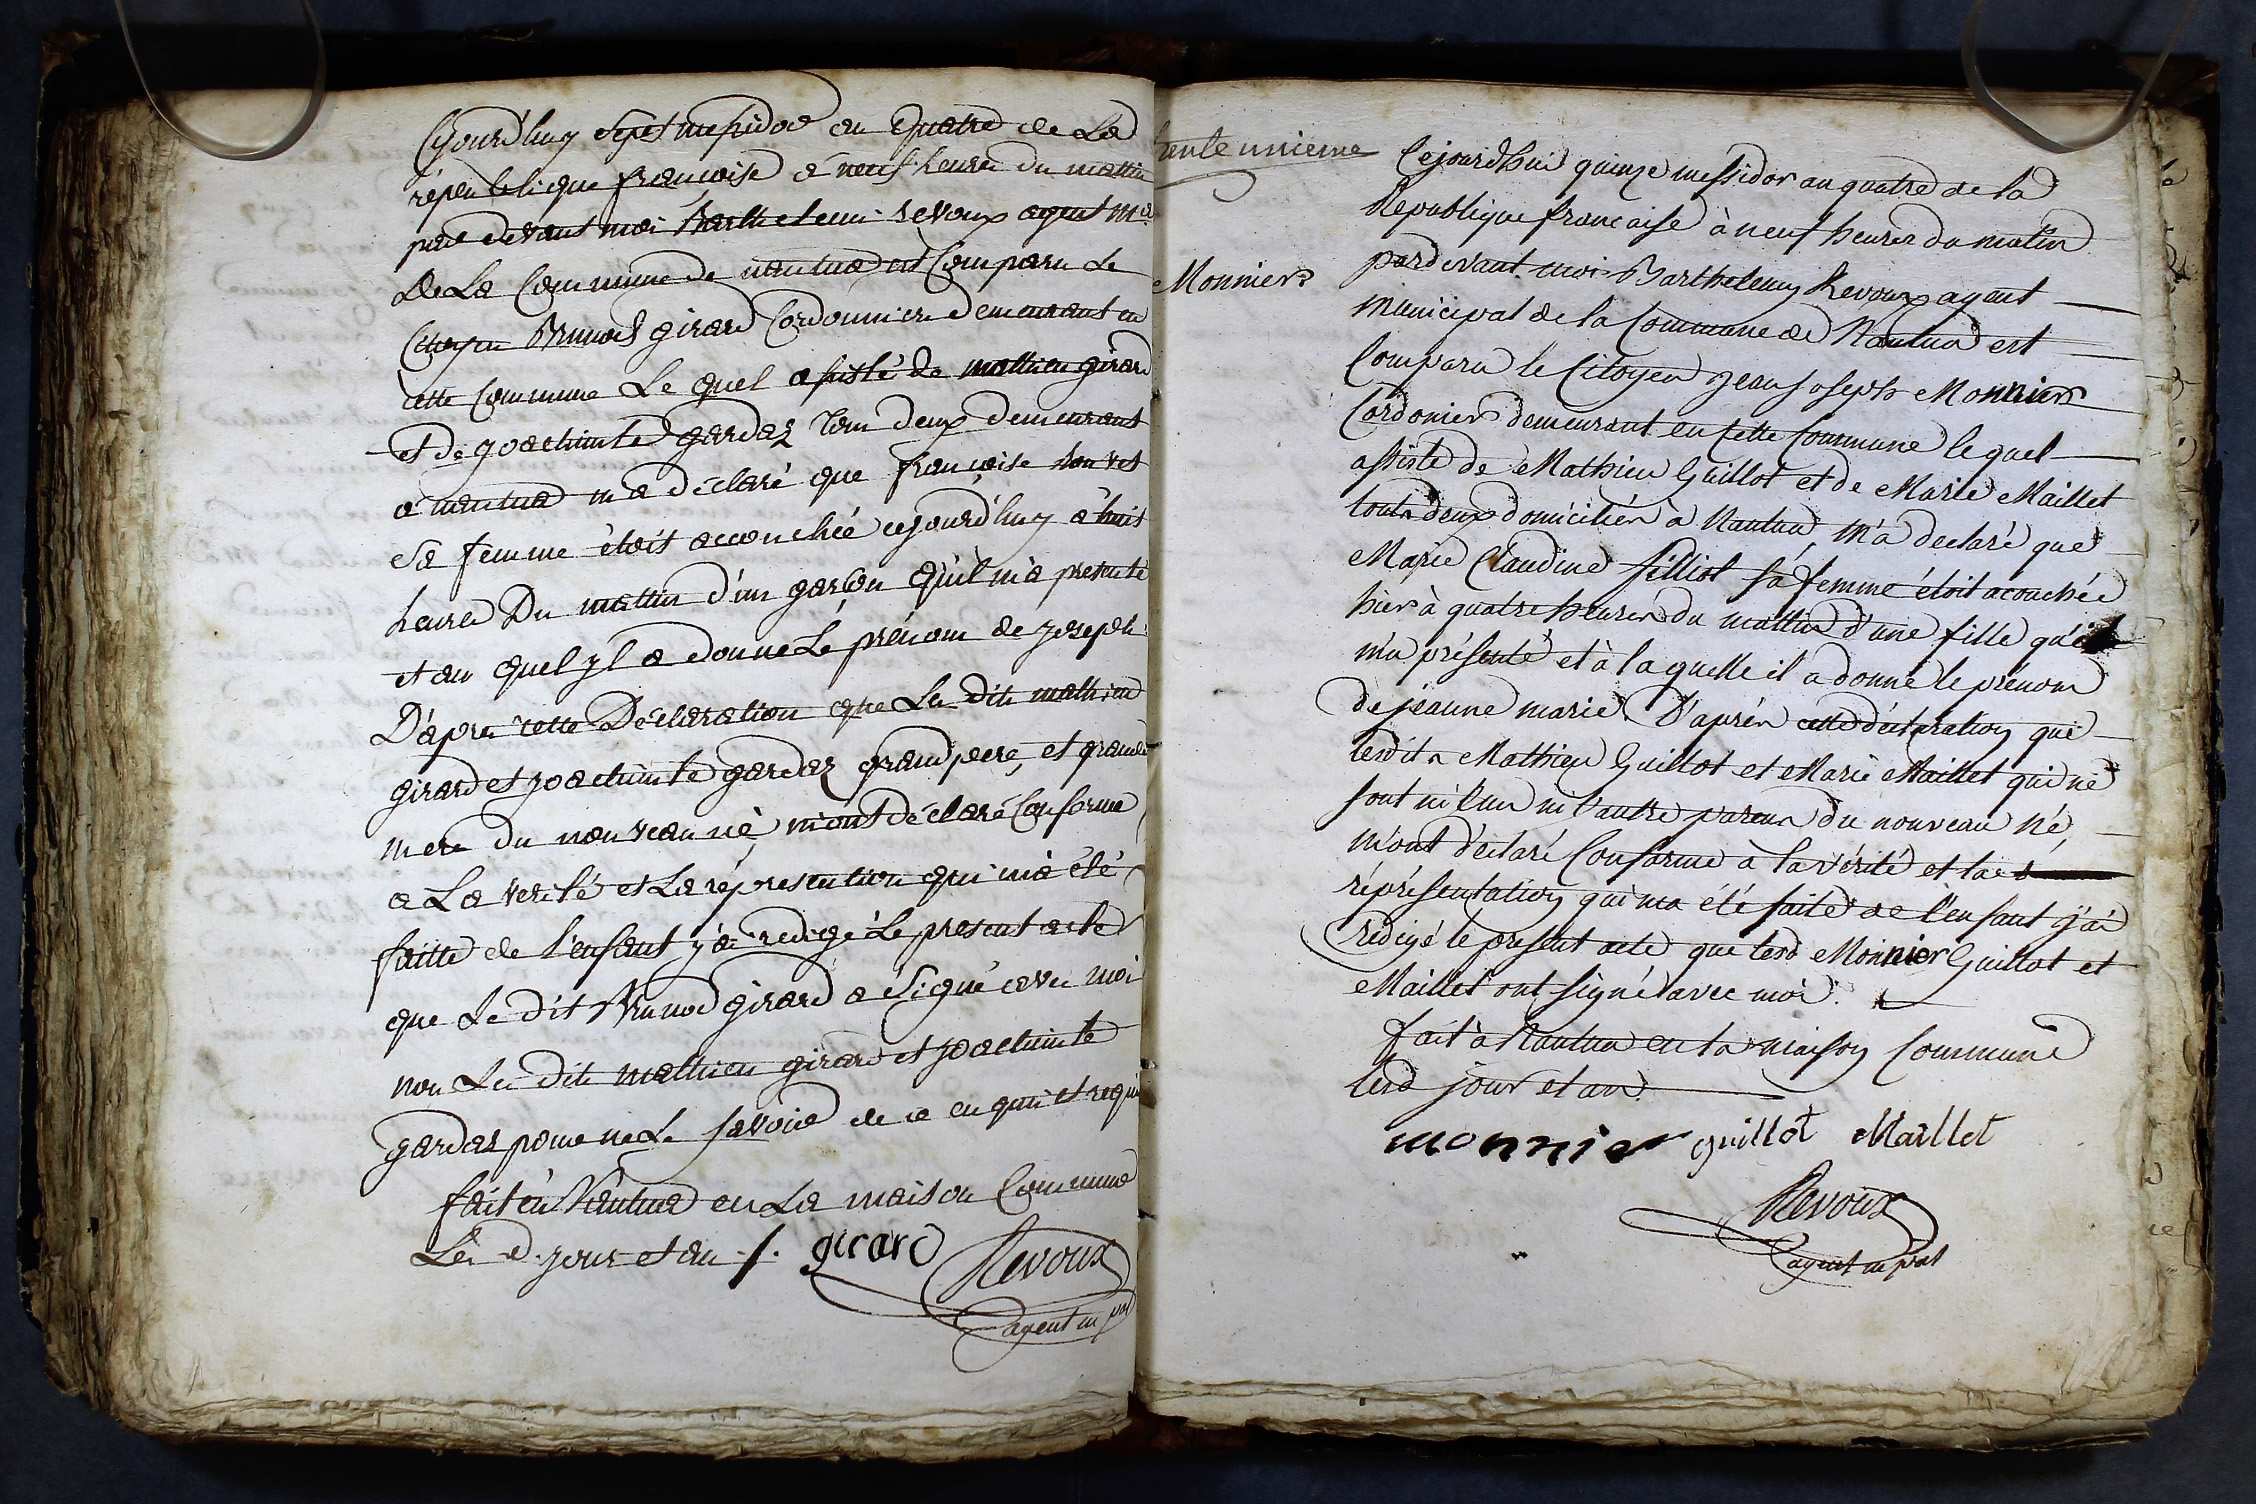 Cejourd'huy sept messidor an quatre de La
républicque francoise a neuf heure du mattin
par devant moi Barthelemi revoux agent m.al
de La Commune de nantua est Comparu Le
Citoyen Brunod girard Cordonnier demeurant en
cette Commune Le quel assisté de mathieu girard
et de joachimte gardaz tous deux demeurant
a nantua m'a déclaré que francoise
sa femme étoit accouchée cejourd'huy a huit
heure Du mattin d'un garçon qu'il m'a presenté
et au quel yl a donné Le prénom de joseph
D'apres cette Déclaration que Les dits mathieu
girard et joachimte gardaz grand pere, et grande
mere du nouveau né, m'ont déclaré Conforme
a La verité et La répresentation qui m'a été
faitte de l'enfant j'ai redigé Le present acte
que Le dit Brunod girard a Signé avec moi
non Les dits mathieu girard et joachimte
gardaz pour ne Le savoir de ce enquis et requis
fait à Nantua en La maison Commune
Les d. jour et an ./. girard Revoux
agent m pal
trente unieme
Monnier
Cejourdhui quinze messidor an quatre de la
Republique francaise à neuf heures du matin
pardevant moi Barthelemy Revoux agent
municipal de la Commune de Nantua est
Comparu le Citoyen jean joseph Monnier
Cordonier demeurant en cette Commune lequel
assisté de Mathieu Guillot et de Marie Maillet
touts deux domiciliés a Nantua m'a declaré que
Marie Claudine filliot sa femme étoit acouchée
hier à quatre heures du mattin d'une fille qu'il
m'a présenté et à laquelle il a donné le prénom
de jéanne marie. D'aprés cette déclaration que
lesdits Mathieu Guillot et Marie Maillet qui ne
sont ni l'un ni l'autre parens du nouveau né,
m'ont déclaré Conforme à la vérité et la
réprésentation qui ma été faite de l'enfant j'ai
redigé le present acte que lesd Monnier Guillot et
Maillet ont signés avec moi.
fait à Nantua en la maison Commune
lesd jour et an
monnier guillot Maillet
Revoux
agent m pal